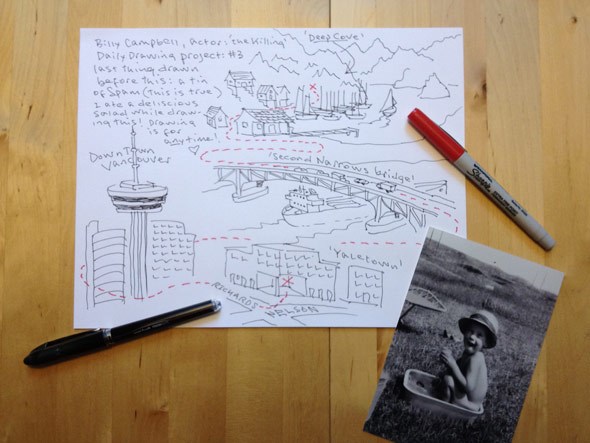 Billy Campbell, actor: 'the Killing'
Daily Drawing project: #3
last thing drawn
before this: a tin
of Spam (this is true)
I ate a deliscious
salad while draw-
ing this! Drawing
is for
anytime!
'Deep Cove'
DownTown
Vancouver
'Second Narrows bridge'
'Yaletown'
RICHARDS
NELSON
Sharpie